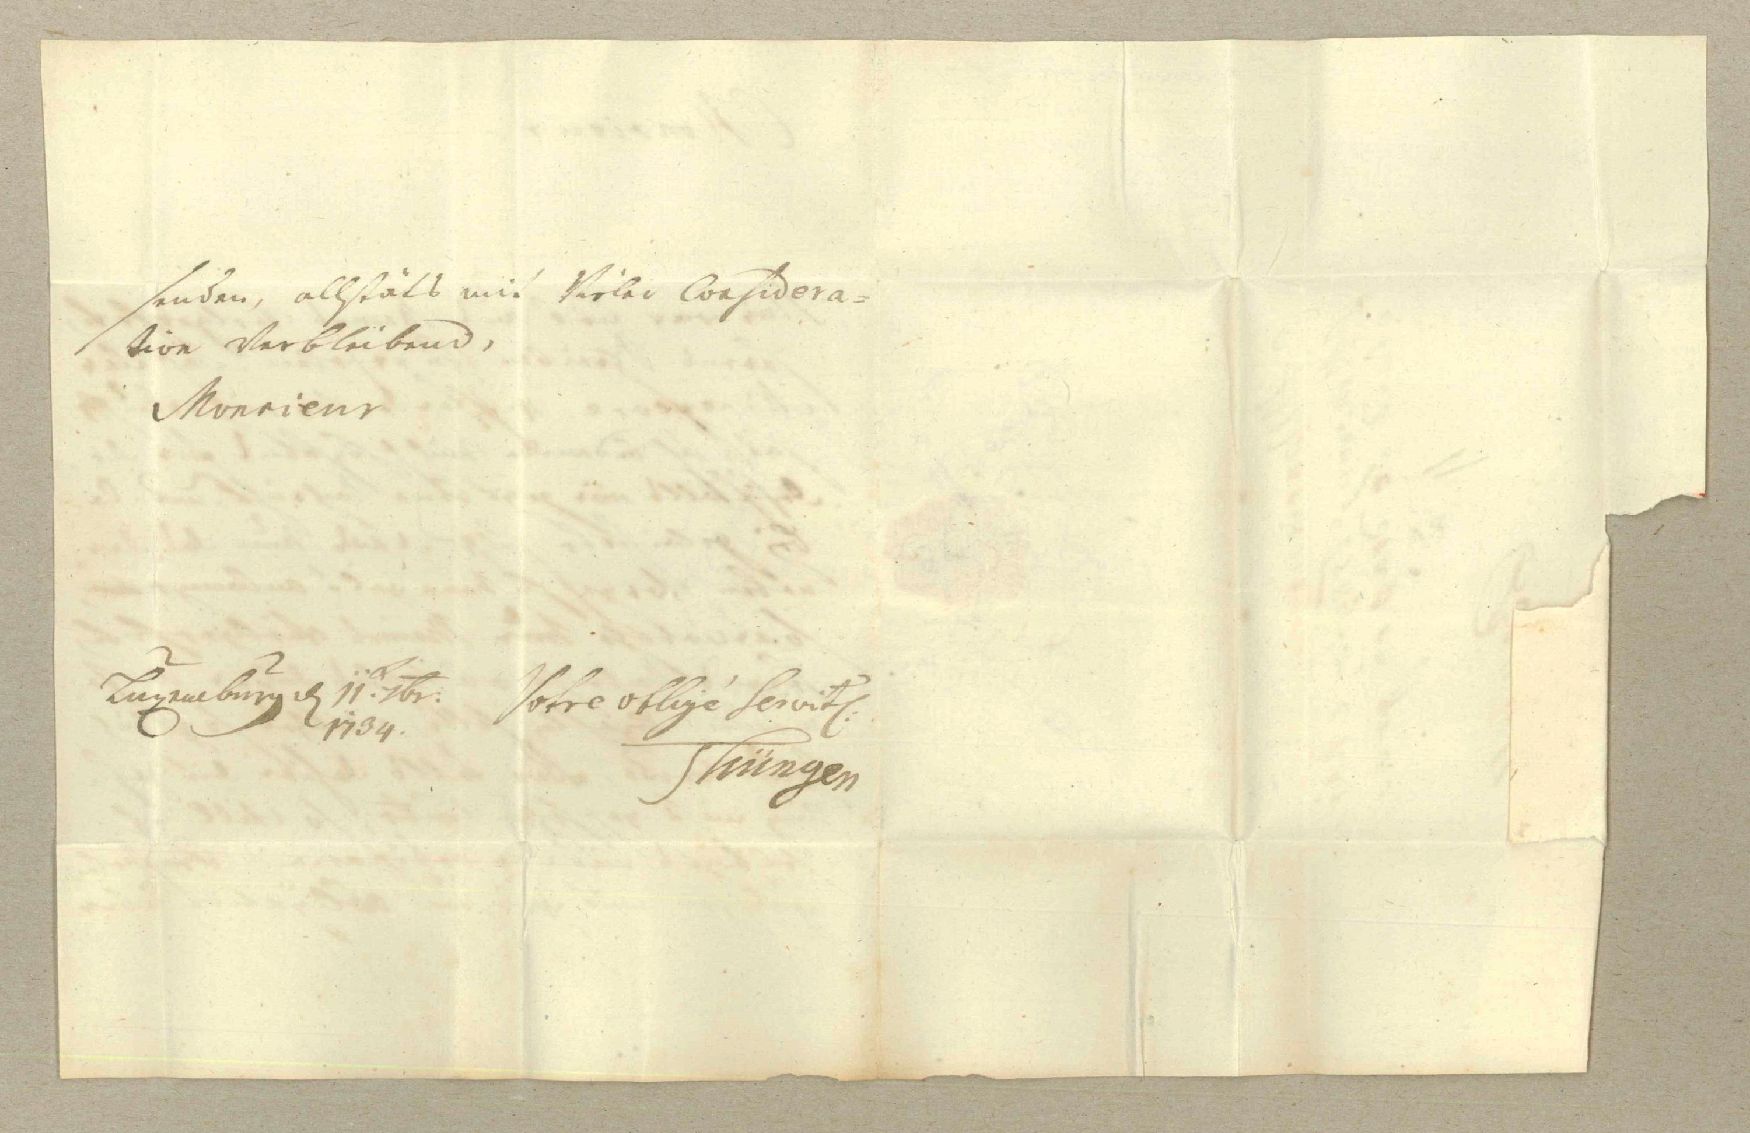 senden, allstäts mit Vieler Considera=
tion Verbleibend,
Monsieur
Luxemburg d 11t. 7br.
1734.
Votre obligé Servit.
Thüngen